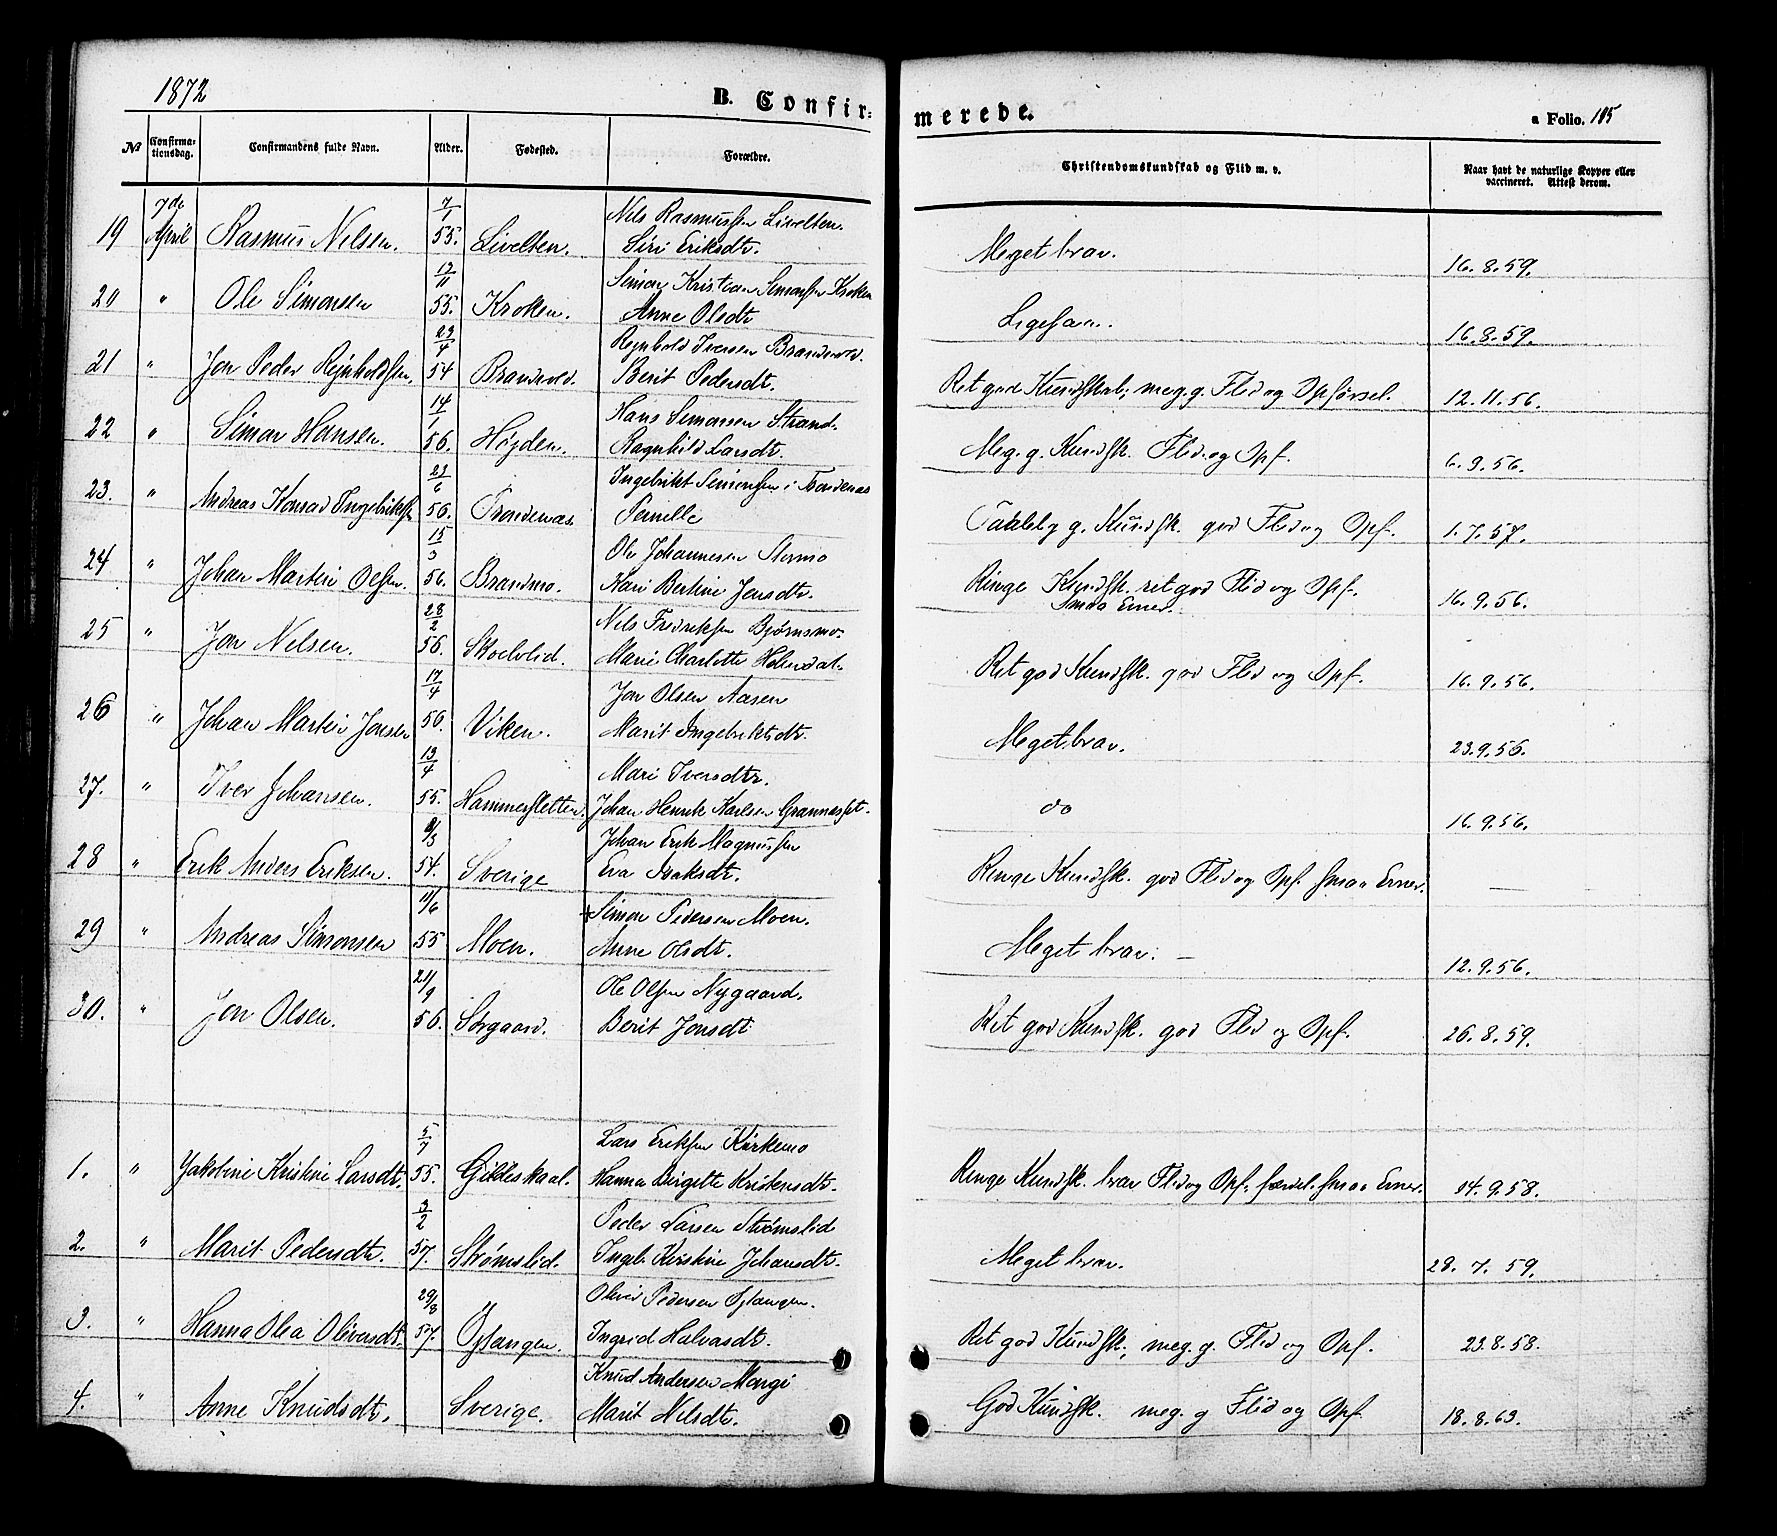 1872
B. Confir-
merede.
a Folio. 105
No
Confirma-
tionsdag.
Confirmandens fulde Navn.
Alder.
Fødested.
Forældre.
Christendomskundskab og Flid m. v.
Naar havt de naturlige Kopper eller
vaccineret. Attest derom.
7de 7/1 Nils Rasmussen Livelten.
19 April Rasmus Nilsen. 55. Livelten. Siri Eriksdtr. Meget brav. 16.8.59.
12/11 Simon Kristian Simonsen Kroken
20 " Ole Simonsen 55. Kroken. Anne Olsdtr Ligesaa. 16.8.59.
23/4 Rejnhold Iversen Brandvold.
21 " Jon Peder Rejnholdsen. 54 Brandvold. Berit Pedersdtr. Ret god Kundskab; meg. g. Flid og Opførsel. 12.11.56.
14/1 Hans Simonsen Strand.
22 " Simon Hansen. 56. Højden. Ragnhild Larsdtr. Meg. g. Kundsk. Flid og Opf. 6.9.56.
23/6 Ingebrikt Simonsen i Trondenæs
23. " Andreas Konrad Ingebriktsen 56. Trondenæs. Pernille Taalelig g. Kundsk. god Flid og Opf. 1.7.57.
15/3 Ole Johannesen Stormo
24 " Johan Martin Olsen. 56. Brandmo. Kari Bertine Jensdtr. Ringe Kundsk. ret god Flid og Opf. 16.9.56.
Smaa Evner.
28/2 Nils Fredriksen Bjørnsmo.
25 " Jon Nilsen. 56. Skoelvlid. Marie Charlotte Ret god Kundsk. god Flid og Opf. 16.9.56.
17/4 Jon Olsen Aasen
26 " Johan Martin Jonsen 56. Viken. Marit Ingebriktsdtr. Meget brav. 23.9.56.
13/4 Mari Iversdtr.
27. " Iver Johansen. 55. Hammersletten. Johan Henrik Karlsen do 16.9.56.
/3 Johan Erik Magnussen
28 " Erik Anders Eriksen. 54. Sverige Eva Isaksdtr. Ringe Kundsk. god Flid og Opf. smaa Evner. —
11/6 +Simon Pedersen Moen.
29 " Andreas Simonsen 55 Moen. Anne Olsdtr. Meget brav. — 12.9.56.
21/9 Ole Olsen Nygaard.
30. " Jon Olsen. 56. Sørgaard. Berit Jonsdtr Ret god Kundsk. god Flid og Opf. 26.8.59.
5/7 Lars Eriksen Kirkemo
1. " Jakobine Kristine Larsdtr. 55. Gildeskaal. Hanna Birgitte Kristensdtr. Ringe Kundsk. brav Flid og Opf. særdel. smaa Evner. 14.9.58.
3/2 Peder Larsen Strømslid
2. " Marit Pedersdtr. 57. Strømslid. Ingeb. Kirstine Johansdtr. Meget brav. 28.7.59.
29/8 Oliver Pedersen Øjtangen.
3. " Hanna Olea Oliversdtr. 57. Øjtangen. Ingrid Halvarsdtr. Ret god Kundsk; meg. g. Flid og Opf. 23.8.58.
Knud Andersen
4. " Anne Knudsdtr. Sverige. Marit Nilsdtr. God Kundsk. meg. g Flid og Opf. 18.8.63.